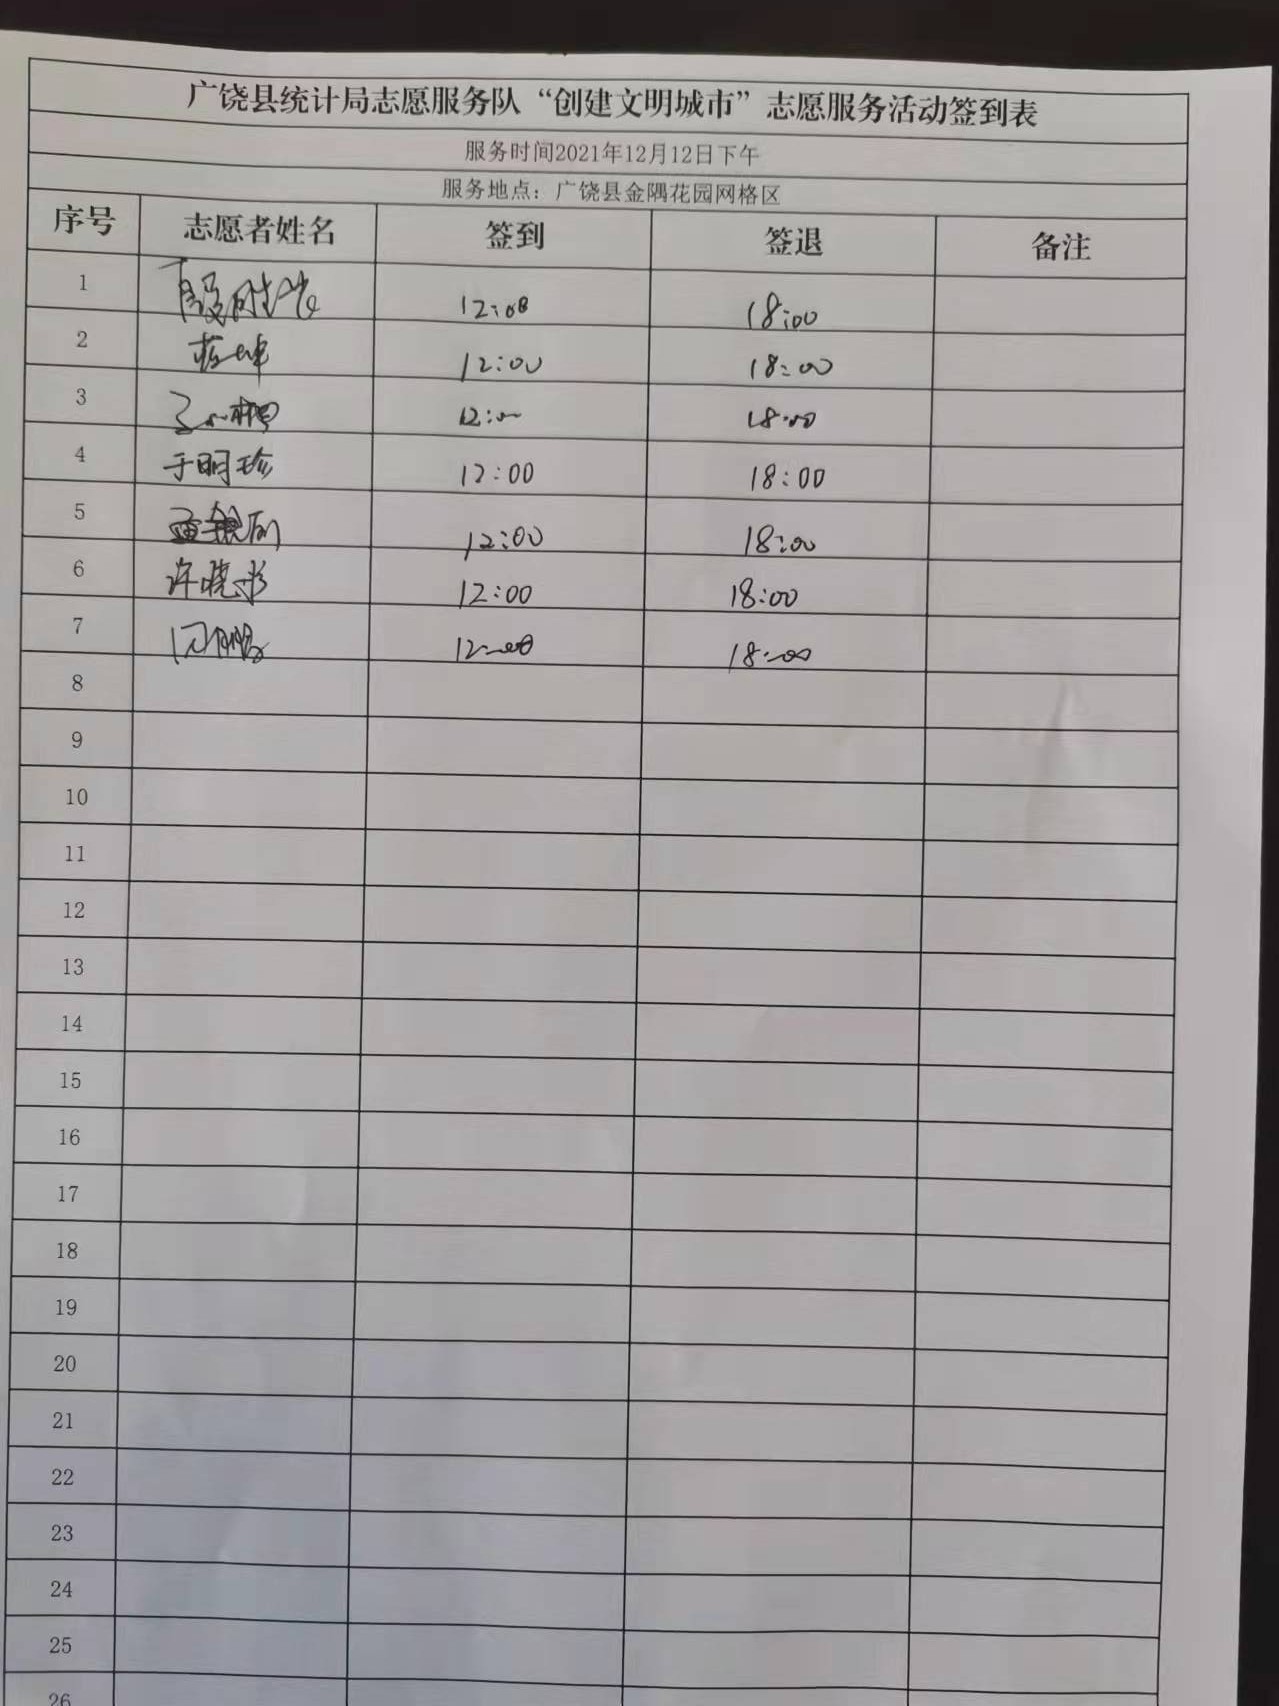 广饶县统计局志愿服务队“创建文明城市”志愿服务活动签到表
服务时间2021年12月12日下午
服务地点：广饶县金隅花园网格区
序号 志愿者姓名 签到 签退 备注
1 12:00 18:00
2 12:00 18:00
3 12:00 18:00
4 于明珍 12:00 18:00
5 12:00 18:00
6 许晓彤 12:00 18:00
7 12:00 18:00
8
9
10
11
12
13
14
15
16
17
18
19
20
21
22
23
24
25
26